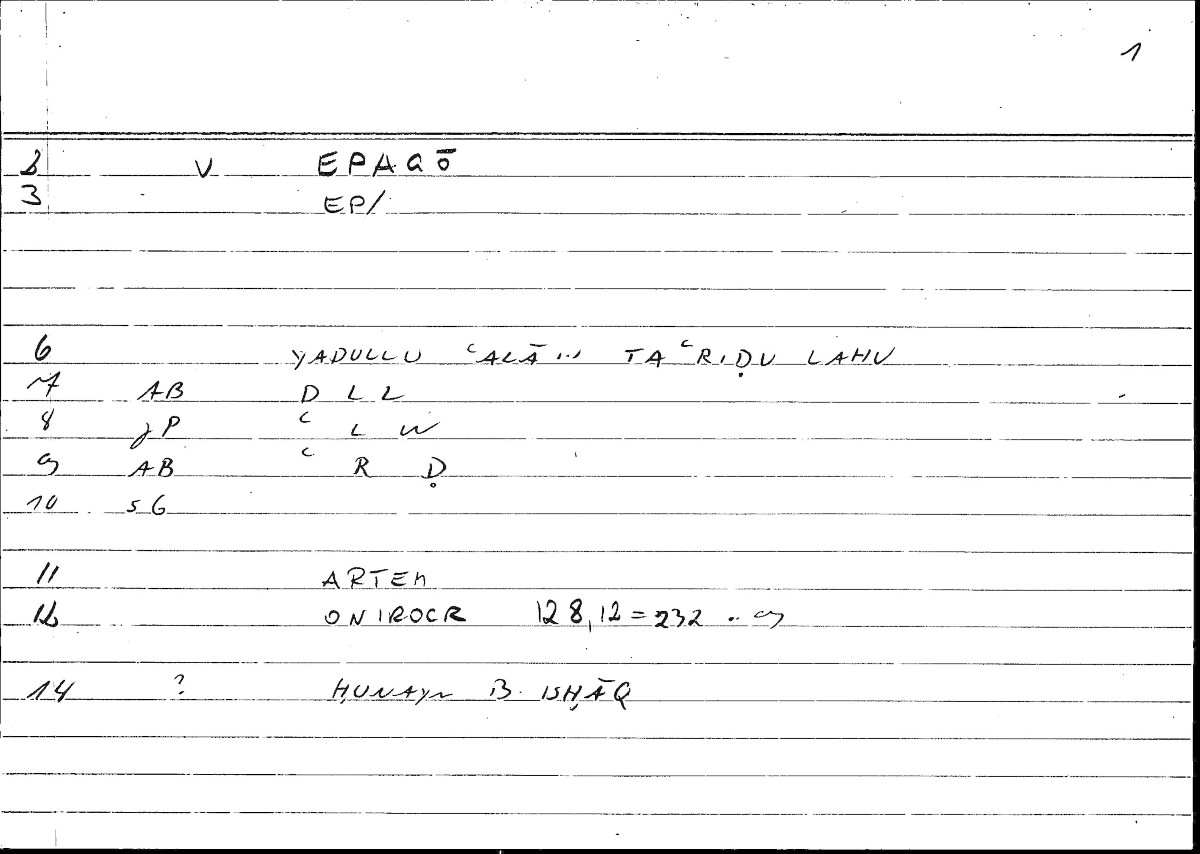 1
2 V EPAGŌ
3 EP/
6 YADULLU ʿALĀ ... TAʿRIḌU LAHU
7 AB D L L
8 JP ʿ L W
9 AB ʿ R Ḍ
10 SG
11 ARTEM
12 ONIROCR 128,12=232 .. 9
14 ? ḤUNAYN B. ISḤĀQ